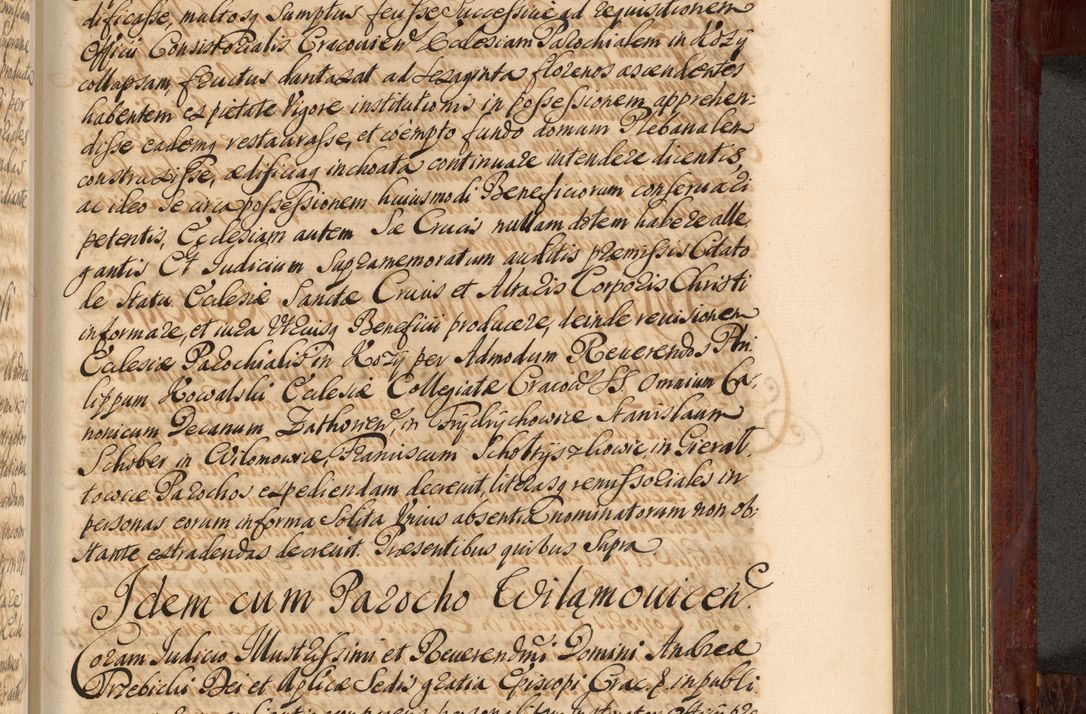 dificasse, multosq sumptus fecisse Successive ad requisitionem
Officii Consistorialis Cracovien Ecclesiam Parochialem in Kozÿ
collapsam, fructus duntaxat ad sexaginta florenos ascendentes
habentem ex pietate Vigore institutionis in possessionem apprehen:
disse eademq restaurasse, et coempto fundo domum Plebanalem
construxisse, ædificiaq inchoata continuare intendere dicentis,
ac ideo se circa possessionem huiusmodi Beneficiorum conservari
petentis, Ecclesiam autem Sæ Crucis nullam dotem habere alle,
gantis Et Iudicium Supramemoratum auditis præmissis Citato
de Statu Ecclesiæ Sanctæ Crucis et Altaris Corporis Christi
informare, et iura Utriusq Beneficii producere, deinde revisionem
Ecclesiæ Parochialis in Kozÿ per Admodum Reverendos Phi
lippum Kowalski Ecclesiæ Collegiatæ Cracov SS. Omnium Ca,
nonicum Decanum Zathorien, in Frydrychowice Stanislaum
Schober in Wilomowice, Franciscum Scholtys z Lowic, in Gieral,
towice Parochos expediendam decrevit, literasq remissoriales in
personas eorum in forma Solita Prius absentia nominatorum non ob:
stante extradendas decrevit. Præsentibus quibus Supra
Idem cum Parocho Wilamovicen.
Coram Iudicio Illustrissimi et Reverendmi Domini Andreæ
Trzebicki Dei et Aplicæ Sedis gratia Episcopi Crac. & in publi